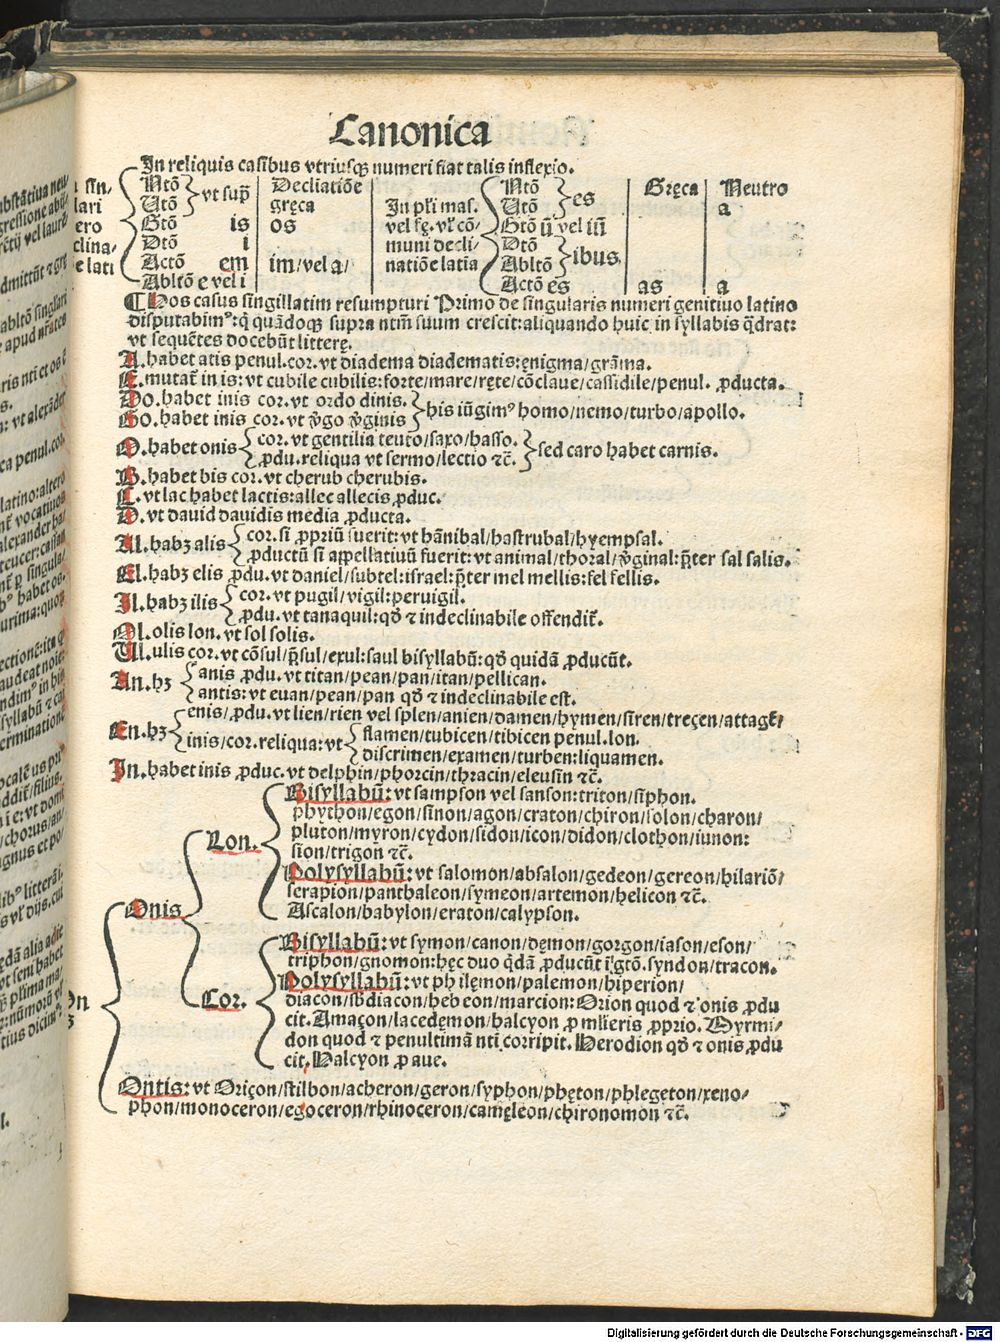 Canonica
In reliquis casibus vtriusqꝫ numeri fiat talis inflexio.
Ntõ
Vtõ
vt supͣ
Gtõ is
Dtõ i
Actõ em
Abltõ e vel i
Decliatiõe
gręca
os
im/vel a/
In pl̃i mas.
vel fę. vl̃ cõ/
muni decli/
natiõe latia
Ntõ
Vtõ
es
Gtõ ũ vel iũ
Dtõ
Abltõ
ibus
Actõ es
Gręca
as
Neutro
a
a
¶ Hos casus singillatim resumpturi Primo de singularis numeri genitiuo latino
disputabimꝰ: q̃ quãdoqꝫ supra ntm̃ suum crescit: aliquando huic in syllabis q̃drat:
vt sequẽtes docebũt litterę.
A. habet atis penul. cor. vt diadema diadematis: ęnigma/grãma.
E. mutat̃ in is: vt cubile cubilis: forte/mare/ręte/cõclaue/cassidile/penul. ꝓducta.
Do. habet inis cor. vt ordo dinis.
Go. habet inis cor. vt ṽgo ṽginis
his iũgimꝰ homo/nemo/turbo/apollo.
O. habet onis
cor. vt gentilia teuto/saxo/hasso.
ꝓdu. reliqua vt sermo/lectio ⁊c̃.
sed caro habet carnis.
B. habet bis cor. vt cherub cherubis.
C. vt lac habet lactis: allec allecis ꝓduc.
D. vt dauid dauidis media ꝓducta.
Al. habꝫ alis
cor. si ꝓpriũ fuerit: vt hãnibal/hastrubal/hyempsal.
ꝓductũ si appellatiuũ fuerit: vt animal/thoral/ṽginal: p̃ter sal salis.
El. habꝫ elis ꝓdu. vt daniel/subtel: israel: p̃ter mel mellis: fel fellis.
Il. habꝫ ilis
cor. vt pugil/vigil: peruigil.
ꝓdu. vt tanaquil: qđ ⁊ indeclinabile offendit̃.
Ol. olis lon. vt sol solis.
Ul. ulis cor. vt cõsul/p̃sul/exul: saul bisyllabũ: qđ quidã ꝓducũt.
An. hꝫ
anis ꝓdu. vt titan/pean/pan/itan/pellican.
antis: vt euan/pean/pan qđ ⁊ indeclinabile est.
En. hꝫ
enis/ꝓdu. vt lien/rien vel splen/anien/damen/hymen/siren/treçen/attagẽ/
inis/cor. reliqua: vt
flamen/tubicen/tibicen penul. lon.
discrimen/examen/turben: liquamen.
In. habet inis ꝓduc. vt delphin/phorcin/thracin/eleusin ⁊c̃.
On
Onis
Lon.
Bisyllabũ: vt sampson vel sanson: triton/siphon.
phython/egon/sinon/agon/craton/chiron/solon/charon/
pluton/myron/cydon/sidon/icon/didon/clothon/iunon:
sion/trigon ⁊c̃.
Polysyllabũ: vt salomon/absalon/gedeon/gereon/hilariõ/
serapion/panthaleon/symeon/artemon/helicon ⁊c̃.
Ascalon/babylon/eraton/calypson.
Cor.
Bisyllabũ: vt symon/canon/dęmon/gorgon/iason/eson/
triphon/gnomon: hęc duo q̃dã ꝓducũt ĩ gtõ. syndon/tracon.
Polysyllabũ: vt philęmon/palemon/hiperion/
diacon/sb̃diacon/hebeon/marcion: Orion quod ⁊ onis ꝓdu
cit. Amaçon/lacedęmon/halcyon ꝓ mlieris ꝓprio. Myrmi/
don quod ⁊ penultimã nti corripit. Herodion qđ ⁊ onis ꝓdu
cit. Halcyon ꝓ aue.
Ontis: vt Oriçon/stilbon/acheron/geron/syphon/phęton/phlegeton/xeno/
phon/monoceron/egoceron/rhinoceron/camęleon/chironomon ⁊c̃.
Digitalisierung gefördert durch die Deutsche Forschungsgemeinschaft - DFG